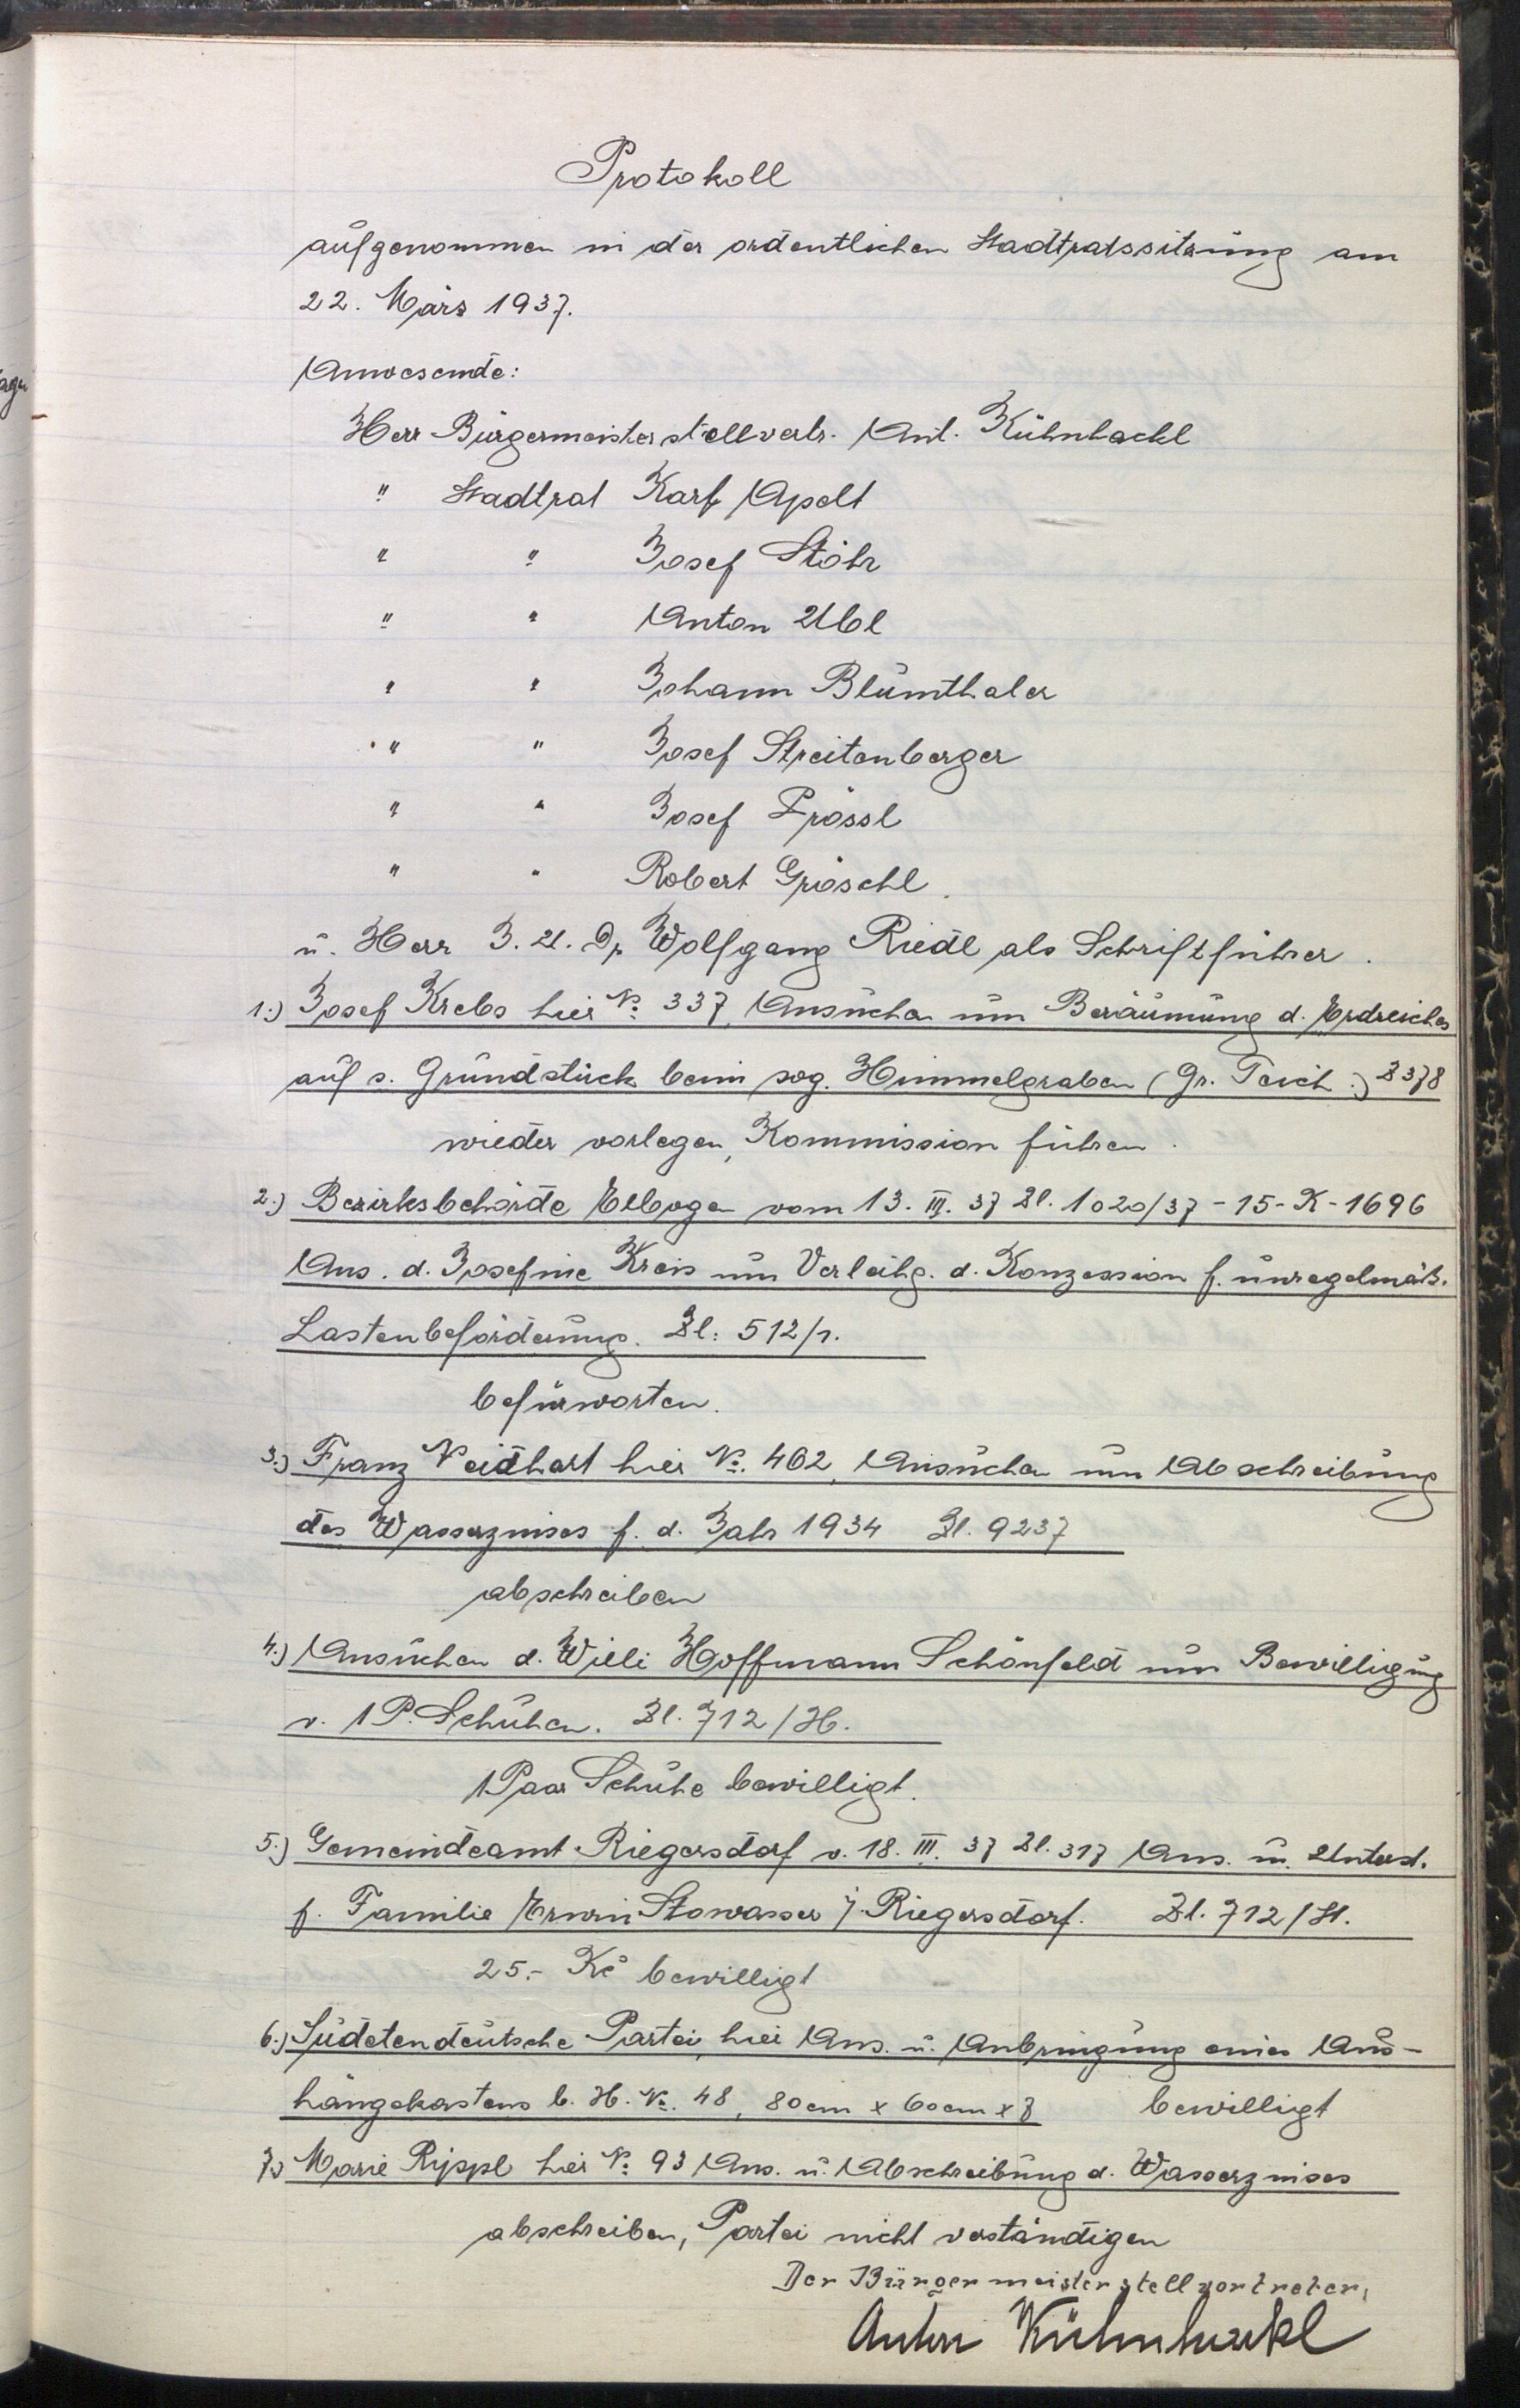 Protokoll
aufgenommen in der ordentlichen Stadtratssitzung am
22. März 1937.
Anwesende:
Herr Bürgermeisterstellvertr. Ant. Kühnhackl
" Stadtrat Karl Apelt
" " Josef Stöhr
" " Anton Ubl
" " Johann Blumthaler
" " Josef Streitenberger
" " Josef Prössl
" " Robert Gröschl.
u. Herr J. U. Dr Wolfgang Riedl als Schriftführer.
1.) Josef Krebs hier No 337, Ansuchen um Beräumung d. Erdreiches
auf s. Grundstück beim sog. Himmelgraben (Gr. Teich.) 2378
wieder vorlegen, Kommission führen.
2.) Bezirksbehörde Elbogen vom 13. III. 37 Zl. 1020/37 - 15 - K - 1696
Ans. d. Josefine Kreis um Verleihg. d. Konzession f. unregelmäß.
Lastenbeförderung. Zl: 512/1.
befürworten.
3.) Franz Neidhart hier No. 462, Ansuchen um Abschreibung
des Wasserzinses f. d. Jahr 1934 Zl. 9237
abschreiben
4.) Ansuchen d. Willi Hoffmann Schönfeld um Bewilligung
v. 1 P. Schuhen. Zl. 712/H.
1 Paar Schuhe bewilligt.
5.) Gemeindeamt Riegersdorf v. 18. III. 37 Zl. 317 Ans. u. Unterst.
f. Familie Erwin Stowasser j. Riegersdorf. Zl. 712/St.
25.- Kč bewilligt
6.) Sudetendeutsche Partei, hier Ans. u. Anbringung eines Aus-
hängekastens b. H. No. 48, 80cm x 60cm x 7 bewilligt
7.) Marie Rippl hier No 93 Ans. u. Abschreibung d. Wasserzinses
abschreiben, Partei nicht verständigen
Der Bürgermeisterstellvertreter,
Anton Kühnhackl